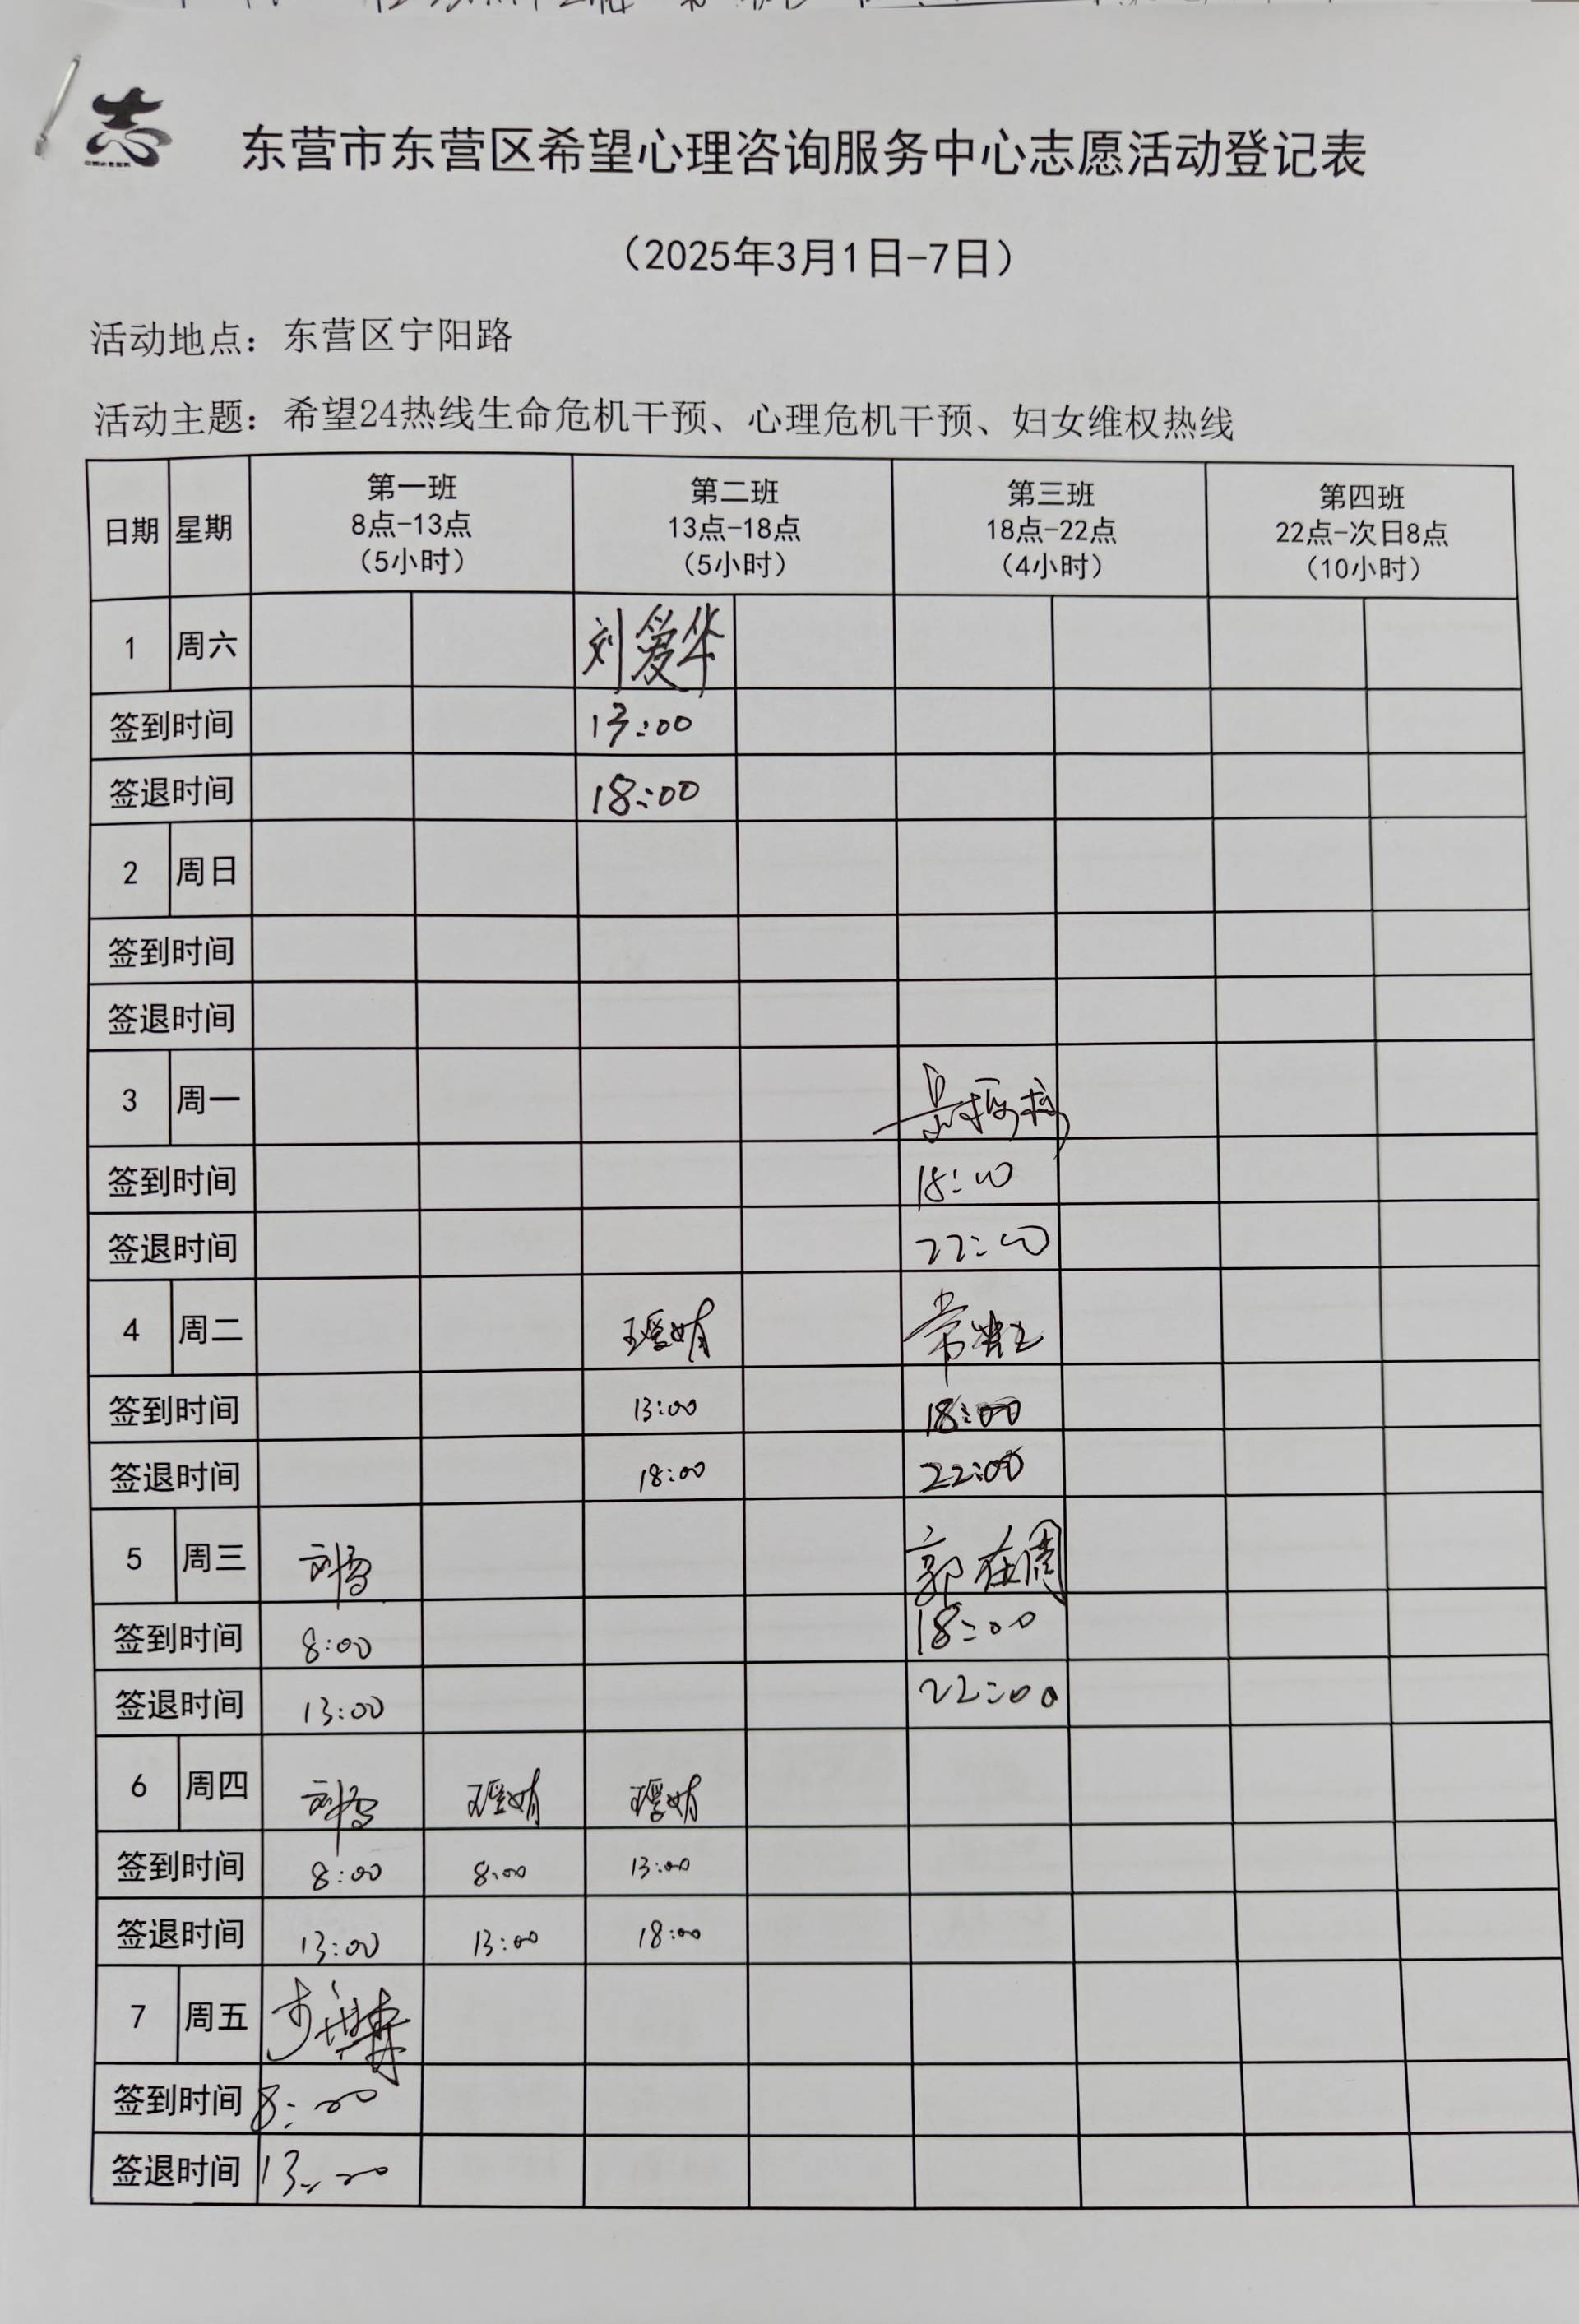 志
东营市东营区希望心理咨询服务中心志愿活动登记表
（2025年3月1日-7日）
活动地点：东营区宁阳路
活动主题：希望24热线生命危机干预、心理危机干预、妇女维权热线
日期 星期 第一班 8点-13点 （5小时） 第二班 13点-18点 （5小时） 第三班 18点-22点 （4小时） 第四班 22点-次日8点 （10小时）
1 周六 刘爱华
签到时间 13:00
签退时间 18:00
2 周日
签到时间
签退时间
3 周一
签到时间 18:00
签退时间 22:00
4 周二
签到时间 13:00 18:00
签退时间 18:00 22:00
5 周三 郭在周
签到时间 8:00 18:00
签退时间 13:00 22:00
6 周四
签到时间 8:00 8:00 13:00
签退时间 13:00 13:00 18:00
7 周五
签到时间 8:00
签退时间 13:00